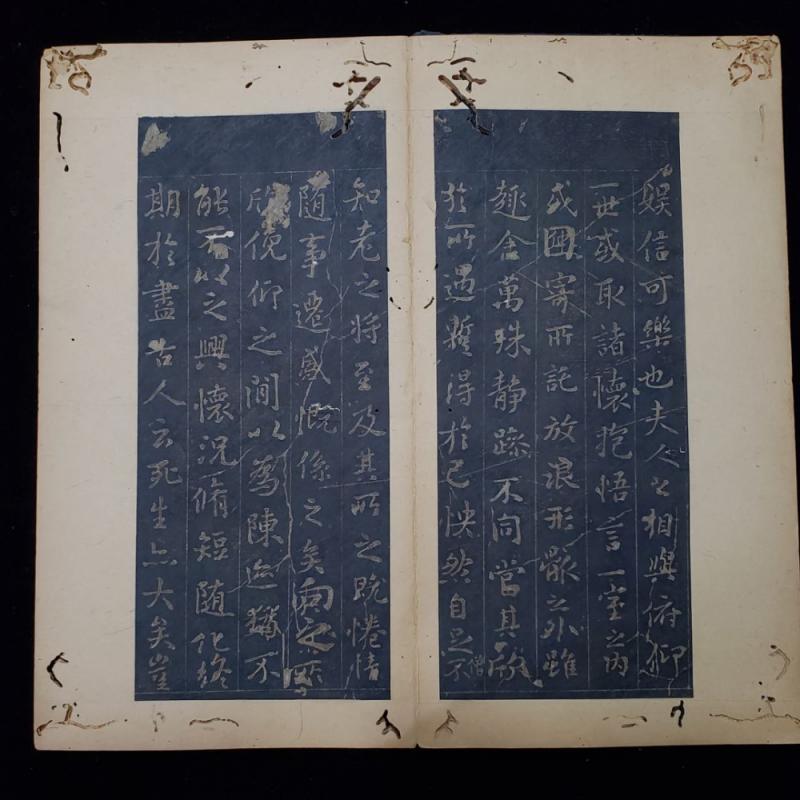 娛信可樂也夫人之相與俯仰
一世或取諸懷抱悟言一室之內
或因寄所託放浪形骸之外雖
趣舍萬殊静躁不同當其欣
僧
於所遇蹔得於己怏然自足不
知老之將至及其所之既惓情
隨事遷感慨係之矣向之所
欣俛仰之閒以爲陳迹猶不
能不以之興懷況脩短隨化終
期於盡古人云死生亦大矣豈